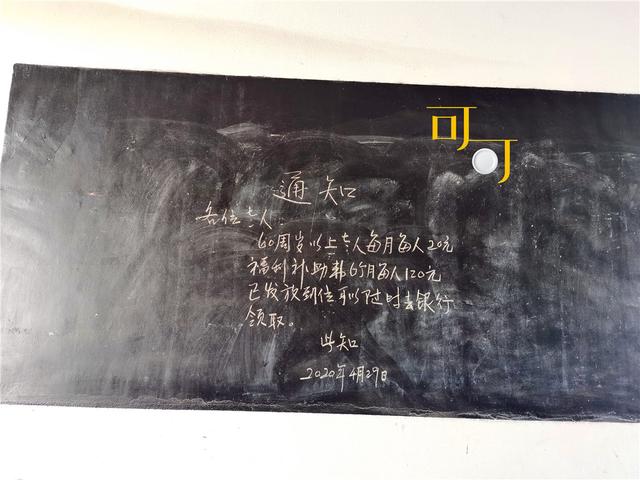 可可
通知
各位老人:
60周岁以上老人每月每人20元
福利补助款6个月每人120元
已发放到位可以随时去银行
领取。
此知
2020年4月29日